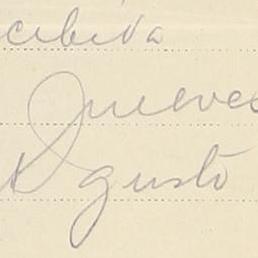 cibida
Jueves
Agusto